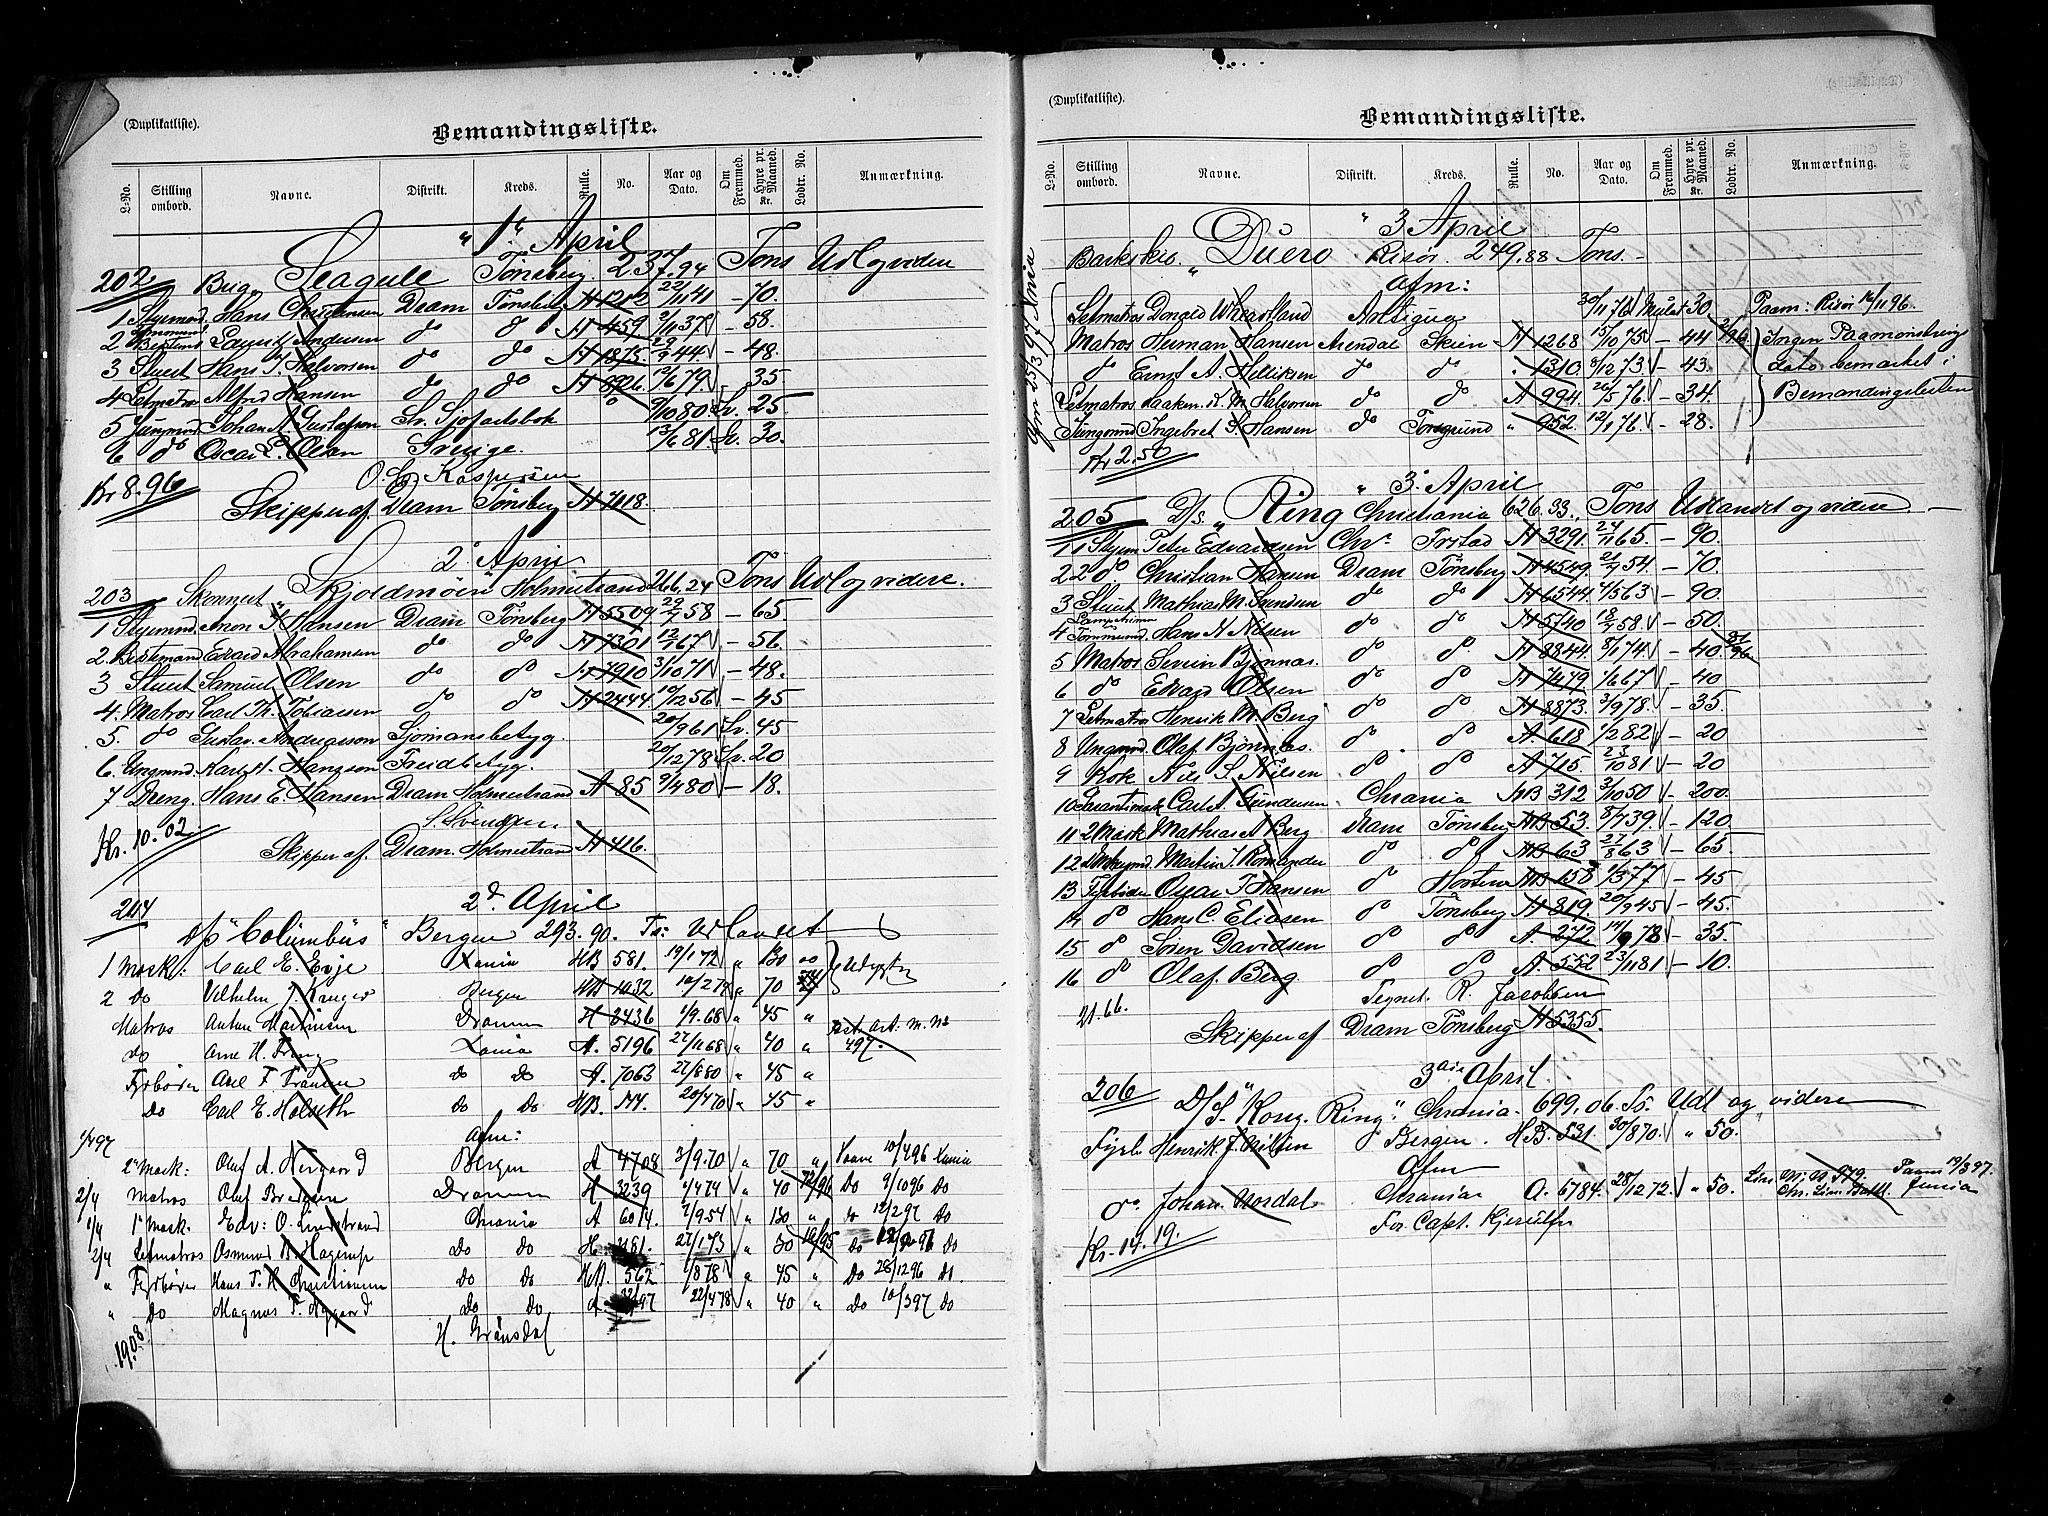 (Duplikatliste).
Bemandingsliste.
L-No. Stilling ombord. Navne. Distrikt. Kreds. Rulle. No. Aar og Dato. Om Fremmed. Hyre pr. Maaned. Kr. Lodtr. No. Anmærkning.
1. April
202. Brig. Seagull Tønsberg. 237.94 Tons Udl og videre
1 Styrmd. Hans Christensen Dram Tønsberg H 1202 22/11 41 – 70.
2 Tømmermd Bestmd Laurits Andersen do do H 459 2/11 37 – 58.
3 Stuert Hans J. Halvorsen do do H 1875 29/9 44 – 48.
4 Letmatr Alfred Hansen do do H 8926 12/6 79. – 35
5 Jungmnd Johan A. Gustafson Sv. Sjøfartsbok 9/10 80 Sv. 25
6 do Oscar L. Olsen Sverige. 13/6 81 Sv. 30.
Kr 8.96 Kaspersen
Skipper af. Dram Tønsberg H 7118.
2 April
203 Skonnert Skjoldmøen Holmestrand 266.24 Tons Udl og videre.
1 Styrmnd Anon J. Hansen Dram Tønsberg H 5509 29/7 58 – 65
2. Bestemand Edvard Abrahamsen do do H 7301 12/2 67 – 56.
3 Stuert Samuel Olsen do do H 7910 3/10 71 – 48.
4. Matros Carl Th. Tobiasen do do H 2444 10/12 56 – 45
5. do Gustav Andreasson Sjömansbetyg. 20/9 61 Sv. 45
6. Ungmnd Karl H. Hansson Freidbetyg. 20/12 78 Sv. 20
7 Dreng. Hans E. Hansen Dram Holmestrand A 85 9/4 80 – 18.
Kr. 10.02. S. Svendsen
Skipper af. Dram. Holmestrand H 416.
204 2d April
D/S "Columbus" Bergen 293.90. Ts: Udlandet
1 Mask: Carl E. Evje Xania HB 581. 19/1 72 " 130
2 Do Vilhelm J. Krüger Bergen HB 1032 10/2 79 " 70
Matros Anton Martinsen Drammen H 8436 1/9.68 " 45 "
do Arne H. Frang Xania A. 5196 27/11 68 " 40 " 497.
Fyrbøder Axel F. Frantzen do do A. 7063 27/8 80 " 45 "
Do Carl E. Holseth do do HB. 144. 20/4 70 " 45 "
1/4 97 Afm:
2 Mask: Oluf A. Nergaard Bergen A 4708 3/9.70 " 70 " Paam 10/4 96 Xania
2/4 Matros Oluf Bredesen Drammen H 3239 1/4 74 " 40 Do 9/10 96 Do
1/4 1 Mask. Edv: O. Lindstrand Xrania A 6014. 7/9.54 " 130 " do 12/2 97 Do
2/4 Letmatros Osmund H. Hagerup Do Do H. 27/1 73 " 30 Do Do
" Fyrbøder Hans F. H. Christiansen do Do HB. 562 1/8 78 " 45 " Do 28/12 96 Do.
" Do Magnus F. Do Do A. 22/4 78 " 40 " Do 10/3 97 Do
19.08. H. Grønsdal
(Duplikatliste).
Bemandingsliste.
L-No. Stilling ombord. Navne. Distrikt. Kreds. Rulle. No. Aar og Dato. Om Fremmed. Hyre pr. Maaned. Kr. Lodtr. No. Anmærkning.
3 April
Barkskib. "Duero Risør. 249.88 Tons. –
Afm:
Letmatros Donald Antigua 30/11 76 Mulat 30. Paam: Risør 16/11 96.
Matros Herman Hansen Arendal Skien H 1268 15/10 75 – 44 Ingen Paamønstrings
do Ernst A. Helliksen do do " 1310 8/12 73 – 43. dato bemærket i
Letmatros Haaken K. M. Halvorsen do do A 994 26/5 76 – 34. Bemandingslisten
Jungmnd Ingebret J. Hansen do Porsgrund " 952. 12/1 76. – 28.
Kr 2.50
3. April
205 D/S. "Ring Christiania 626.33. Tons Udlandet og videre
1 1 Styrm Peter Edvardsen Chr. Ivstad H 3291. 24/11 65. – 90.
2 2 do. Christian Hansen Dram. Tønsberg H 4549. 21/7 54. – 70
3 Stuert Mathias M. Svendsen do do H 6544. 4/5 63 – 90
4 Lampetrimm Tømmermd. Hans N. Nilsen do do H 5740 18/7 58. – 50.
5 Matros Severin Bjønnas. do do H 8844 8/1 74 – 40
6 do Edvard Olsen do do H 7479 1/6 67 – 40
7 Letmatros Henrik M. Berg do do H 8873. 3/9 78. – 35.
8 Ungmnd. Olaf Bjønnas. do do A 618 1/2 82 – 20
9 Kok Nils S. Nilsen do do A 715 23/10 81 – 20
10 1ste mask Carl A. Gundersen. Chrania HB 312 3/10 50 – 200.
11 2 Mask Mathias A Berg Dram Tønsberg HB 53. 8/7 39. – 120
12 Donkeymd. Martin J. Romander do do HB 63 27/8 63 – 65
13 Fyrbøder Oscar J. Hansen do Horten HB 158 1/3 77 – 45
14 do Hans C. Eliasen do Tønsberg H 819. 20/9 45 – 45.
15 do Søren Davidsen do do A. 272 14/9 78 – 35.
16 do Olaf. Berg do do A. 552 23/11 81 – 10.
21.66. Tegnet. R. Jacobsen
Skipper af Dram Tønsberg H 5355.
3die April.
206 D/S. "Kong Ring". Chrania. 699.06. To. Udl og videre
Fyrb Henrik J. Nilsen Bergen. HB. 531. 30/8 70. " 50.
Afm
do. Johan Nordal Chrania A. 6784. 28/12 72. " 50. Paam 19/3 97.
For Capt. Kjerulf
Kr. 14.19.